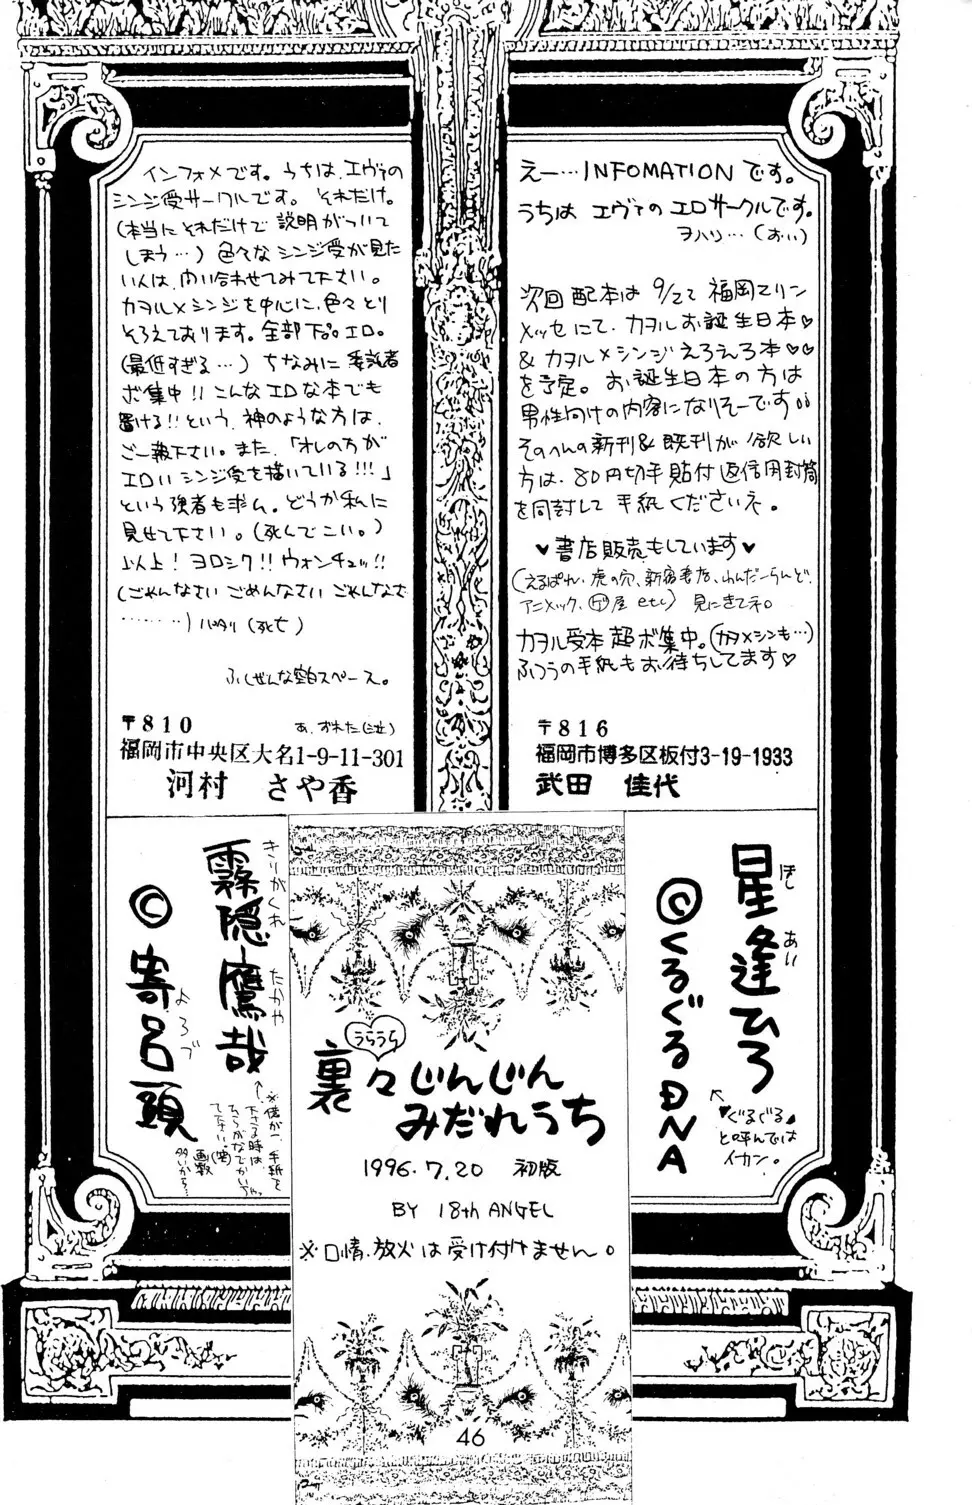 インフォメです。うちは、エヴァの
シンジ受サークルです。それだけ。
(本当にそれだけで説明がついて
しまう…) 色々なシンジ受が見た
い人は、問い合わせてみて下さい。
カヲル×シンジを中心に、色々とり
そろえております。全部下品。エロ。
(最低すぎる…) ちなみに委託者
ボ集中!! こんなエロな本でも
置ける!! という、神のような方は、
ご一報下さい。また、「オレの方が
エロいシンジ受を描いている!!!」
という強者も求ム。どうか私に
見せて下さい。(死んでこい。)
以上! ヨロシク!! ウォンチュッ!!
(ごめんなさい ごめんなさい ごめんなさ
………) バタリ (死亡)
ふしぜんな空白スペース。
あ、ずれた(泣)
〒810
福岡市中央区大名1-9-11-301
河村 さや香
えー…INFOMATIONです。
うちは エヴァのエロサークルです。
ヲハリ…(おい)
次回配本は 9/22 福岡マリン
メッセにて、カヲルお誕生日本♡
&カヲル×シンジえろえろ本♡♡
を予定。お誕生日本の方は
男性向けの内容になりそーです
そのへんの新刊&既刊が欲しい
方は、80円切手貼付返信用封筒
を同封して 手紙くださいネ。
♥書店販売もしています♥
(えるぱれ、虎の穴、新宿書店、わんだーらんど、
アニメック、ゲ屋 etc) 見にきてネ。
カヲル受本 超ボ集中。(カヲ×シンも…)
ふつうの手紙もお待ちしてます♡
〒816
福岡市博多区板付3-19-1933
武田 佳代
星逢ひろ
ほし あい
©くるぐるDNA
↖♥ぐるぐる♥
と呼んでは
イカン。
裏々じんじん
うらうら
みだれうち
1996.7.20 初版
BY 18th ANGEL
※口情、放火は受け付けません。
霧隠鷹哉
きりがくれ たかや
©寄呂頭
よろず
46